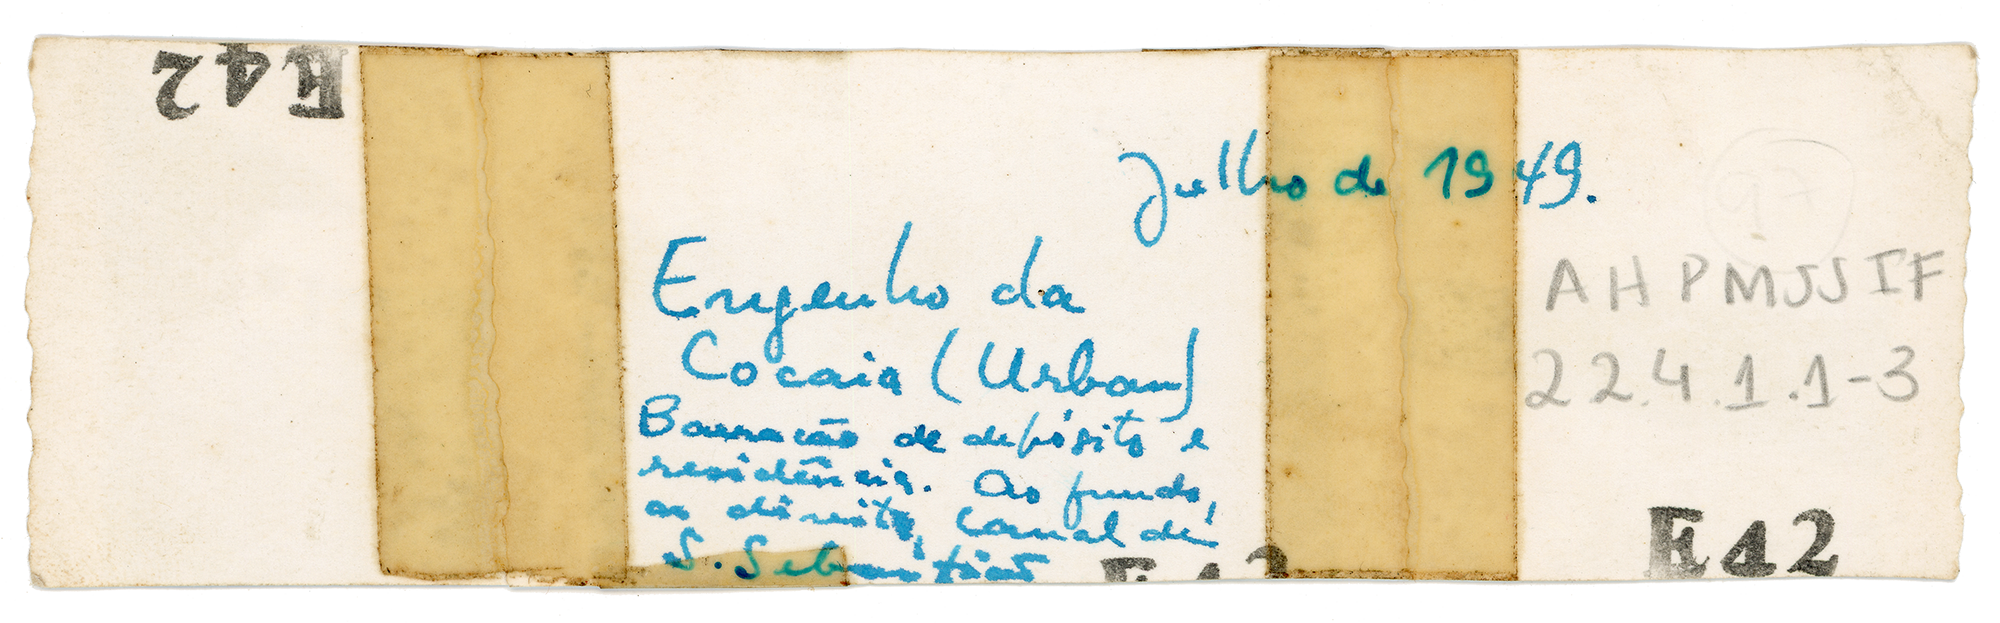 E42
Julho de 1949.
Engenho da
Cocaia (Urban)
Barracão de depósito e
residência. Ao fundo,
as direita, Canal de
S. Sebastião
AHPMJJIF
22.4.1.1-3
E42
E42